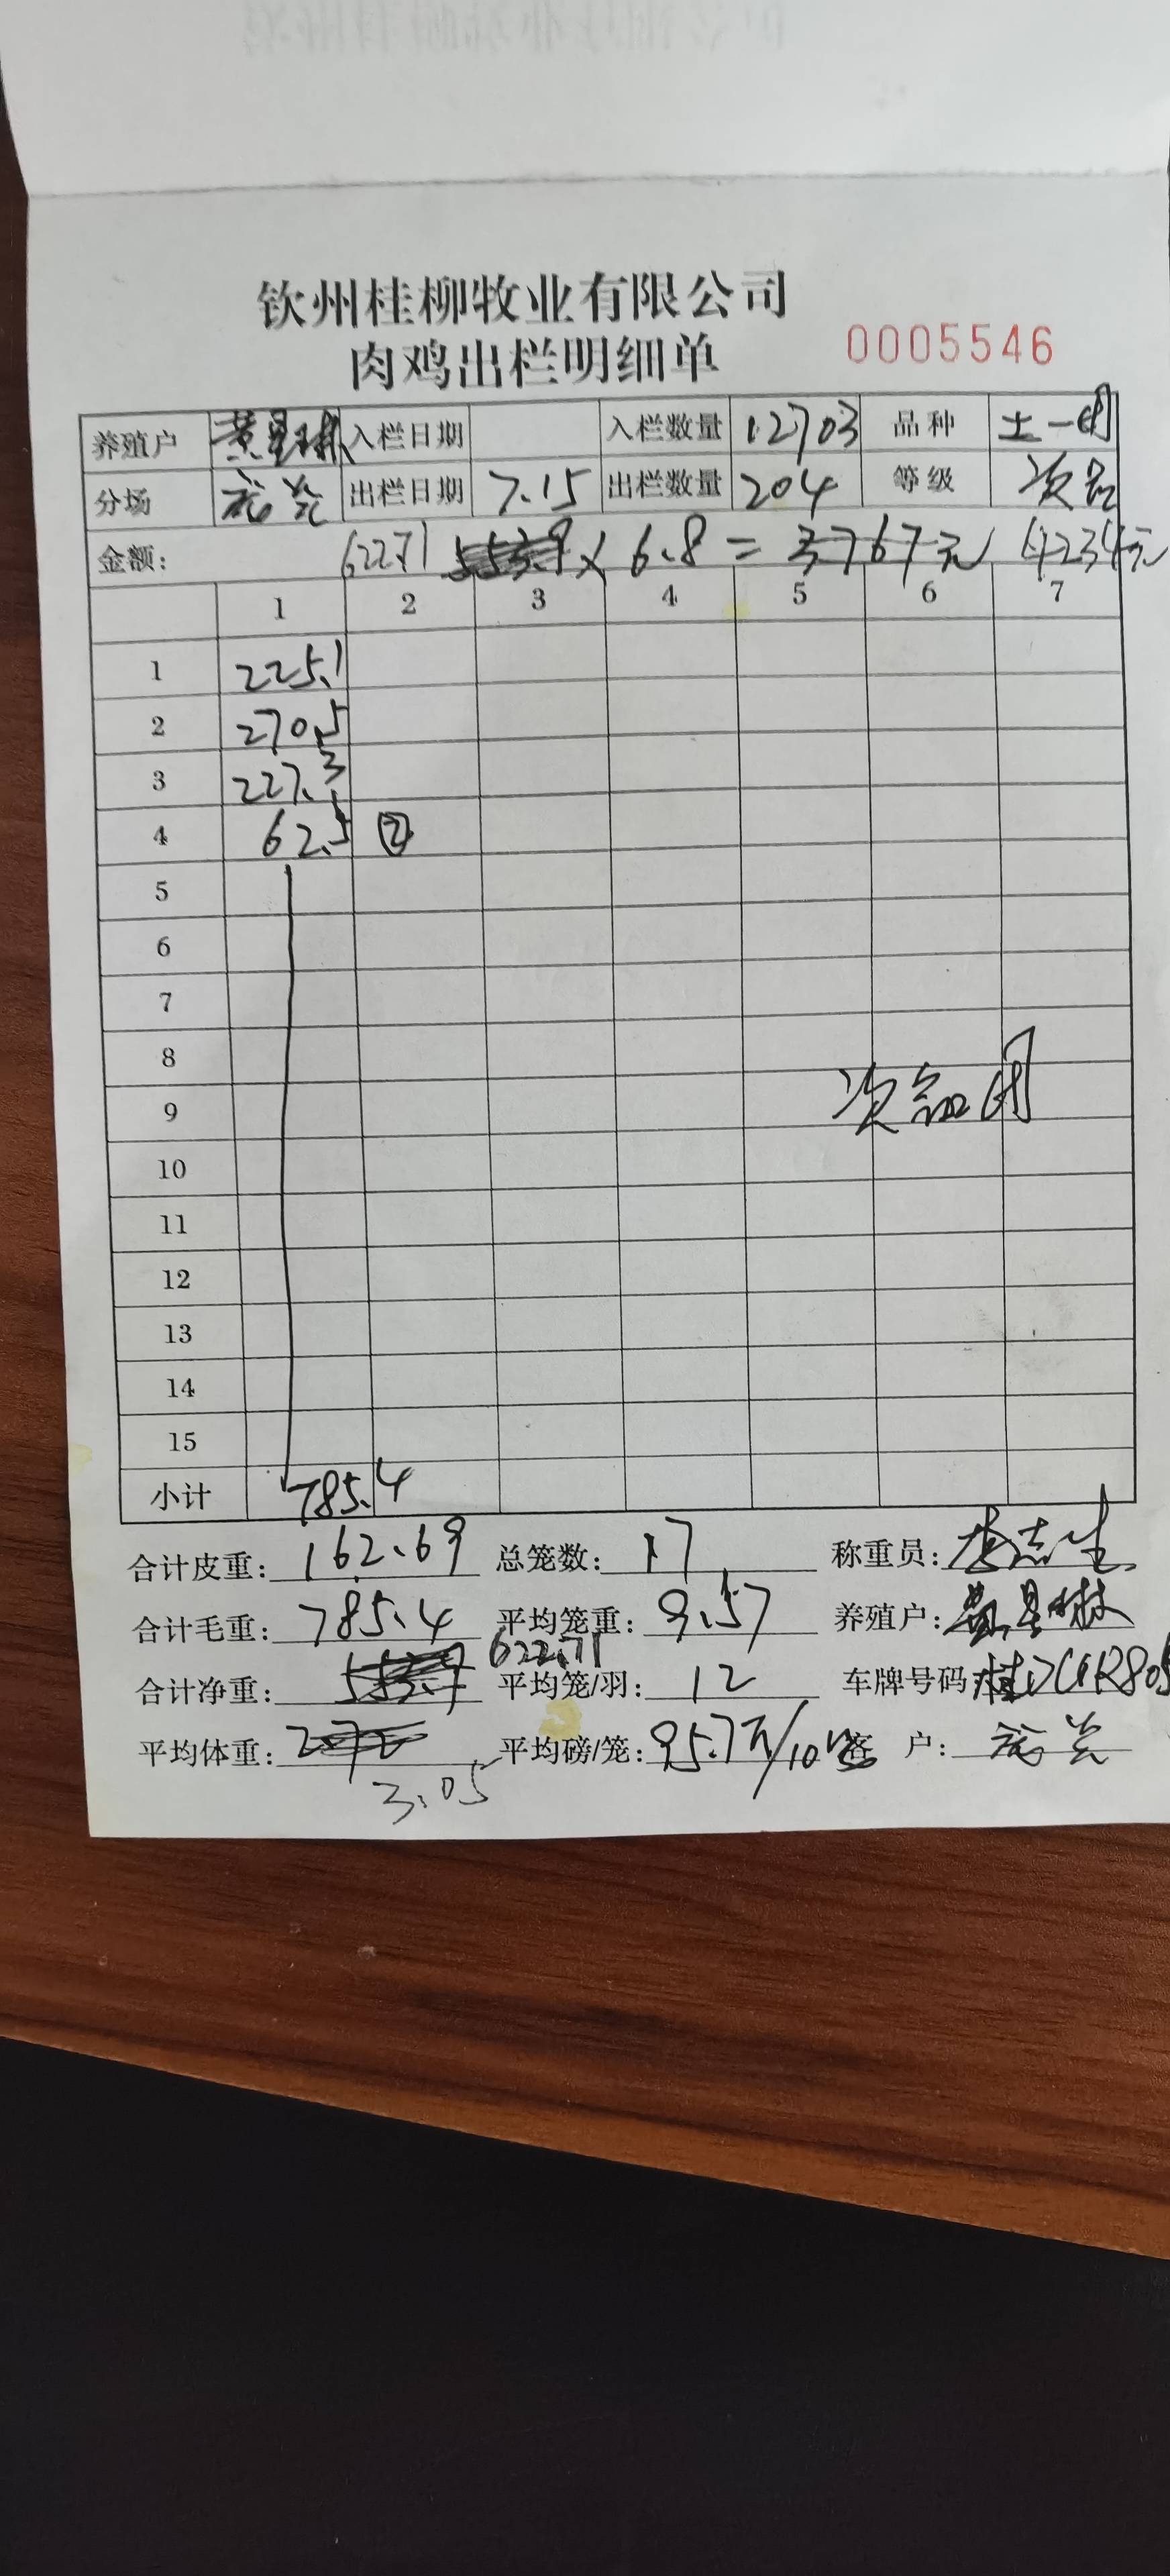 钦州桂柳牧业有限公司
肉鸡出栏明细单 0005546
养殖户 黄 入栏日期 入栏数量 12703 品种 土一
分场 出栏日期 7.15 出栏数量 204 等级 次品
金额: 622.71 553.9 × 6.8 = 3767元 4234元
1 2 3 4 5 6 7
1 225.1
2 270.5
3 227.3
4 62.5 ②
5
6
7
8
9 次品
10
11
12
13
14
15
小计 785.4
合计皮重: 162.69 总笼数: 17 称重员: 志生
合计毛重: 785.4 平均笼重: 9.57 养殖户: 黄
合计净重: 553.9 622.71 平均笼/羽: 12 车牌号码:
平均体重: 2.72 3.05 平均磅/笼: 95.7 户: